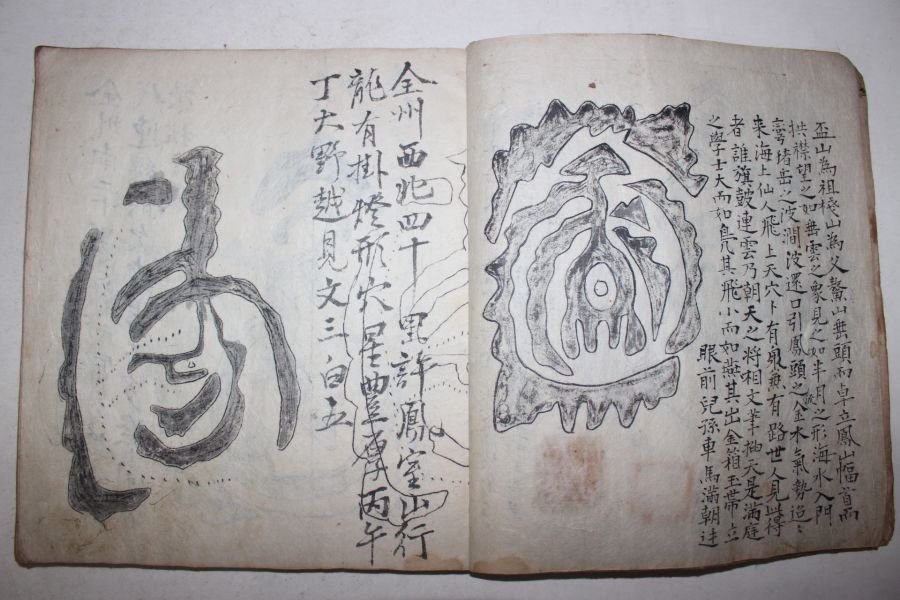 盃山為祖棧山為父鰲山無頭而卓立鳳山幅首而
拱襟望之如無雲之象見之如半月之形海水入門
堵岳之波澗波還口引鳳頭之金水氣勢迢々
來海上仙人飛上天穴下有泉無有路世人見此得
者誰旗鼓連雲乃朝天之將相文筆抽天是滿庭
之學士大而如其飛小而如燕其出金箱玉帶立
眼前兒孫車馬滿朝廷
全州西北四十里許鳳室山行
龍有掛燈形穴星豊厚丙午
丁大野越見文三白五